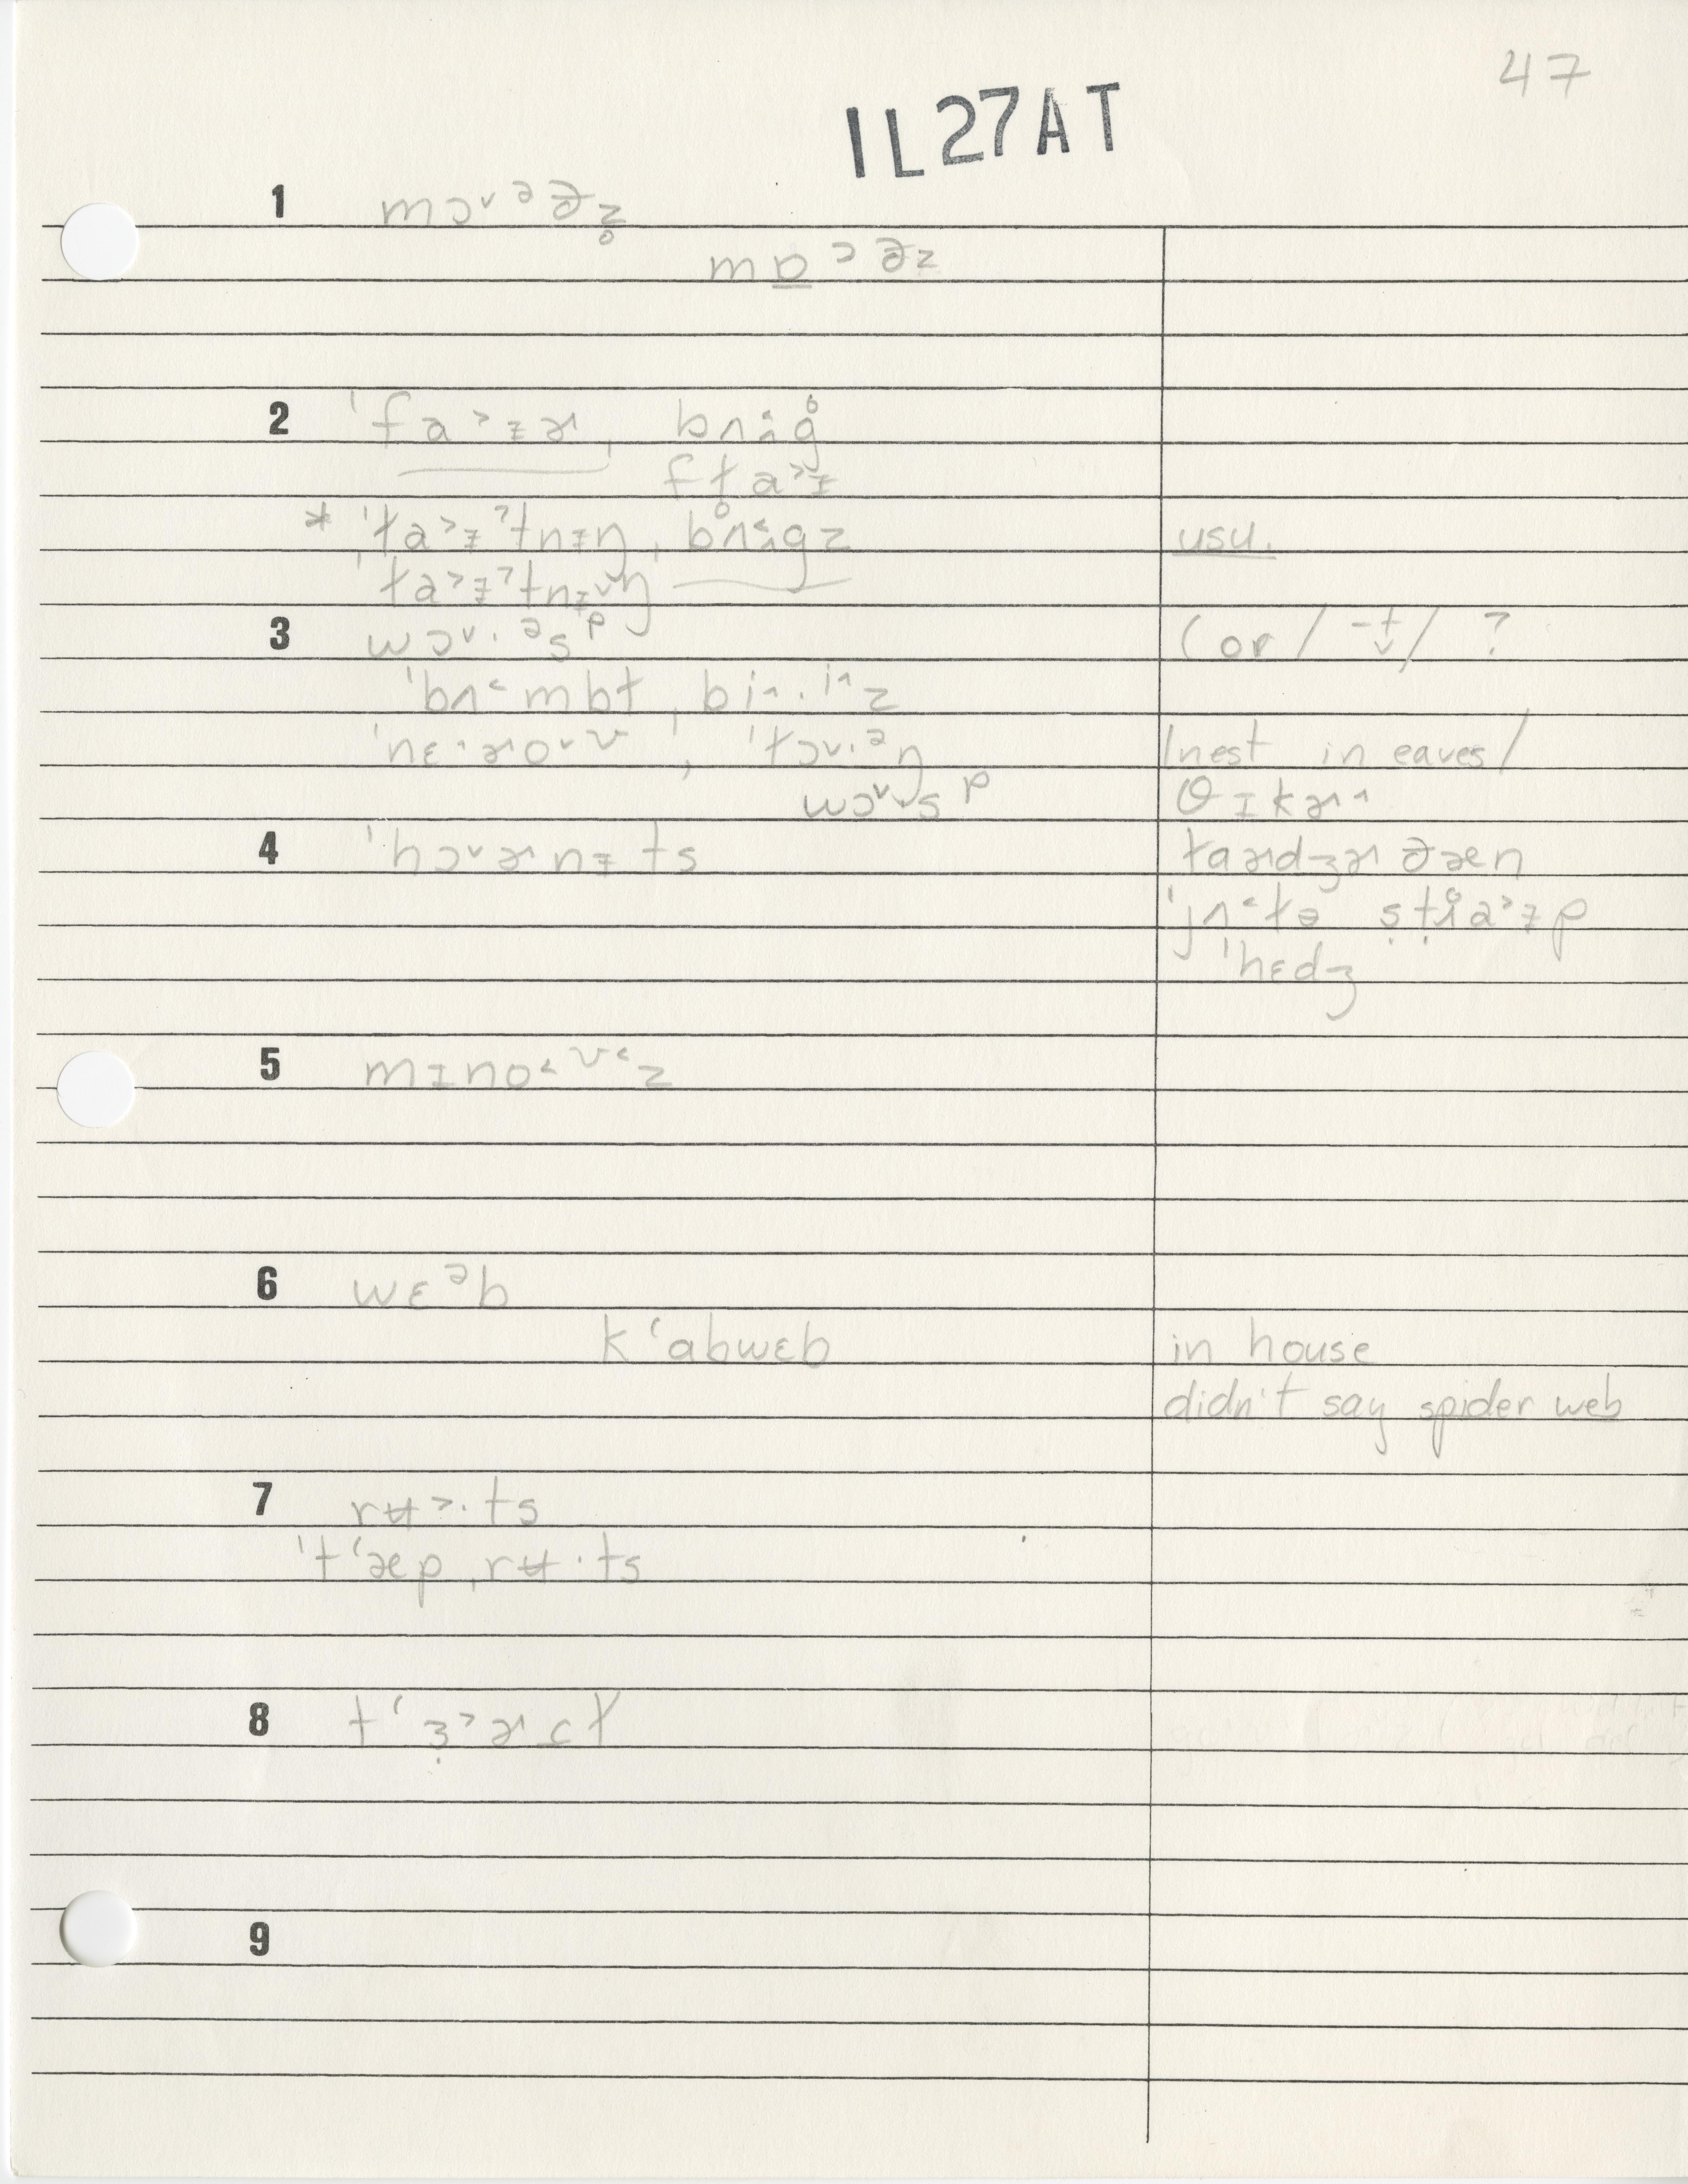 47
IL27AT
1 mɔ˅ᵊðz̥
mɑ̲ᵓðz
2 ˈfa˃ɪɚˌ bʌ˄g̊
fɫa˃ɪ
* ˈɫa˃ɪˀtnɪŋ ˌb̥ʌ˂gz usu.
ˈɫa˃ɪˀtnɪ˅ŋ
3 wɔ˅·ᵊsᵖ (or / -t̬/ ?
ˈbʌ˂mbɫˌbi˄·i˄z
ˈhɛ·ɚo˅˅, ˈɫɔ˅·ᵊŋ /nest in eaves/
wɔ˅˅sᵖ θɪkɚ˄
4 ˈhɔ˅ɚnɪts ɫaɚdʒɚ ðæn
ˈjʌ˂ɫə ṣṭɹ̥a˃ɪp
ˈhɛdʒ
5 mɪno˂ᶹ˂z
6 wɛᵊb
kʻabwɛb in house
didn't say spider web
7 rʉ˃·ts
ˈtʻæpˌrʉ·ts
8 tʻɜ̣˃ɚɫ
9